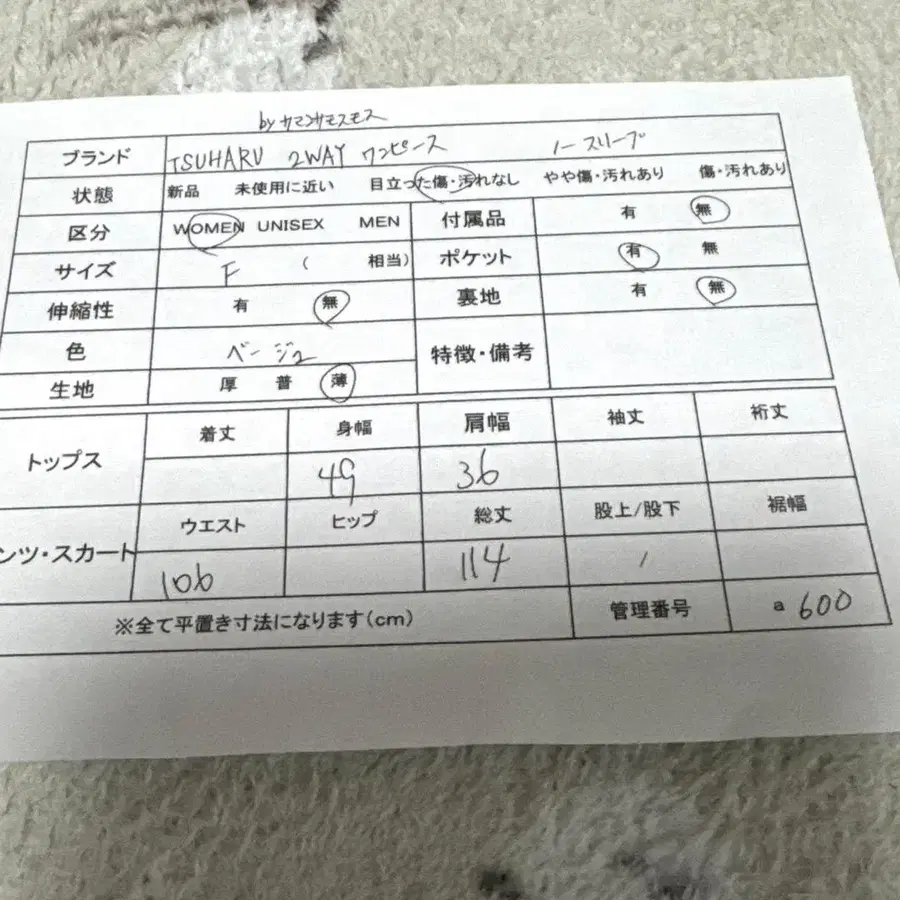 by サマンサモスモス
ブランド TSUHARU 2WAY ワンピース ノースリーブ
状態 新品 未使用に近い 目立った傷・汚れなし やや傷・汚れあり 傷・汚れあり
区分 WOMEN UNISEX MEN 付属品 有 無
サイズ F ( 相当) ポケット 有 無
伸縮性 有 無 裏地 有 無
色 ベージュ 特徴・備考
生地 厚 普 薄
トップス 着丈 身幅 肩幅 袖丈 裄丈
49 36
ンツ・スカート ウエスト ヒップ 総丈 股上/股下 裾幅
106 114 /
※全て平置き寸法になります(cm) 管理番号 a 600